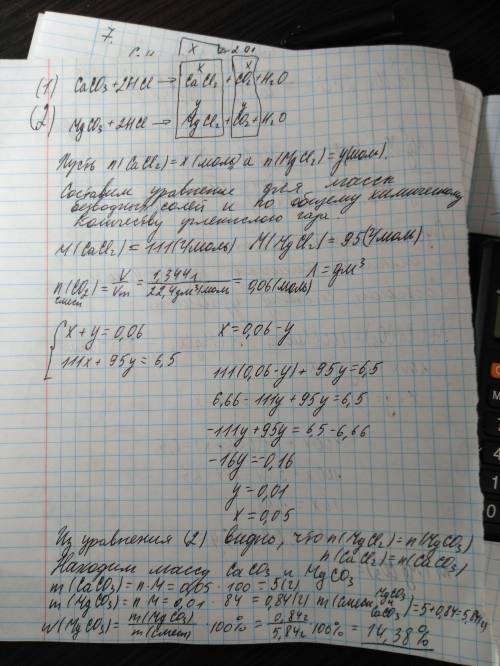 7.
x
x x
(1) CaCO₃ + 2HCl → CaCl₂ + CO₂ + H₂O
y y
(2) MgCO₃ + 2HCl → MgCl₂ + CO₂ + H₂O
Пусть n(CaCl₂) = x (моль) а n(MgCl₂) = y (моль).
Составим уравнение для масс
безводных солей и по общему химическому
количеству углекислого газа.
M(CaCl₂) = 111 (г/моль) M(MgCl₂) = 95 (г/моль).
n(CO₂) смеси = V/Vm = 1,344 л / 22,4 дм³/моль = 0,06 (моль) л = дм³
{ x + y = 0,06 x = 0,06 - y
111x + 95y = 6,5
111(0,06 - y) + 95y = 6,5
6,66 - 111y + 95y = 6,5
-111y + 95y = 6,5 - 6,66
-16y = -0,16
y = 0,01
x = 0,05
Из уравнения (2) видно, что n(MgCl₂) = n(MgCO₃)
n(CaCl₂) = n(CaCO₃)
Находим массу CaCO₃ и MgCO₃
m(CaCO₃) = n·M = 0,05 · 100 = 5 (г)
m(MgCO₃) = n·M = 0,01 · 84 = 0,84 (г) m(смеси MgCO₃ и CaCO₃) = 5 + 0,84 = 5,84 (г)
w(MgCO₃) = m(MgCO₃)/m(смеси) · 100% = 0,84г/5,84г · 100% = 14,38%